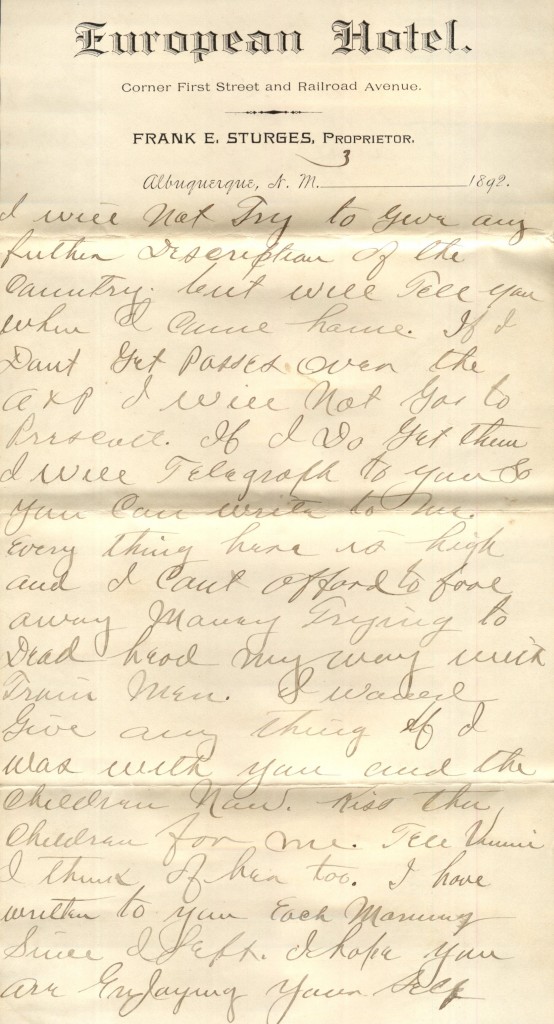 European Hotel.
Corner First Street and Railroad Avenue.
FRANK E. STURGES, PROPRIETOR.
3
Albuquerque, N. M. 1892.
I will Not Try to Give any
further Description of the
Country. but will Tell you
when I come home. If I
Dont Get Passes over the
A & P I will Not Goe to
Prescott. If I Do Get them
I will Telegraph to you So
you Can write to me.
Every thing here is high
and I Cant afford to fool
away Money Trying to
Dead head my way with
Train Men. I would
Give any thing if I
was with you and the
Children Now. Kiss the
Children for me. Tell
I think of her too. I have
written to you Each Morning
Since I Left. I hope you
are Enjoying your Self